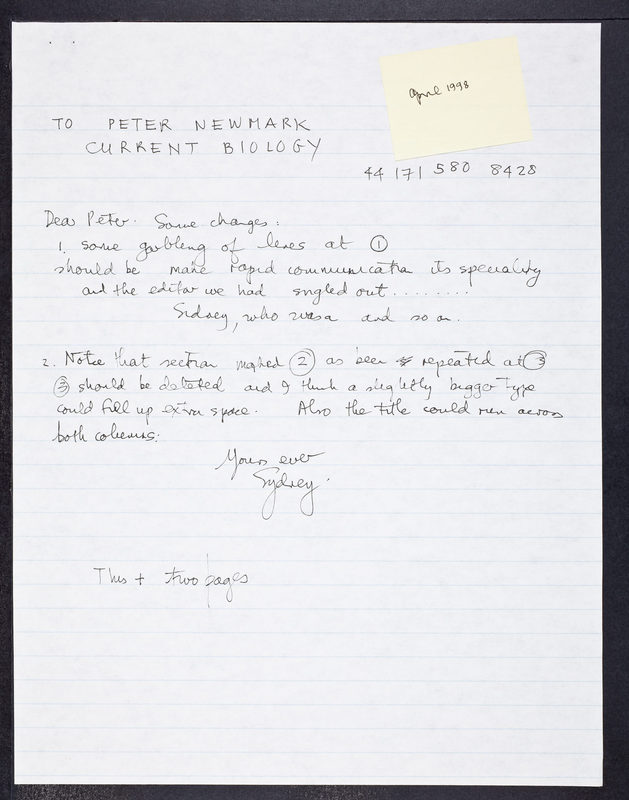 April 1998
TO PETER NEWMARK
CURRENT BIOLOGY
44 171 580 8428
Dear Peter. Some changes:
1. some garbling of lines at ①
should be make rapid communication its speciality
and the editor we had singled out ........
Sidney, who was a and so on.
2. Note that section marked ② as been repeated at ③
③ should be deleted and I think a slightly bigger type
could fill up extra space. Also the title could run across
both columns.
Yours ever
Sydney.
This + two pages